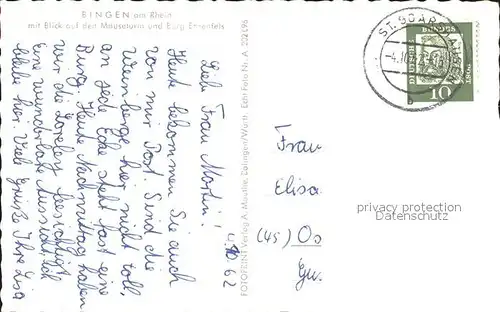 BINGEN am Rhein
mit Blick auf den Mäuseturm und Burg Ehrenfels
4. 10. 62
Liebe Frau Martin!
Heute bekommen Sie auch
von mir Post. Sind die
Weinberge hier nicht toll,
an jede Ecke steht fast eine
Burg. Heute Nachmittag haben
wir die Loreley besichtigt
Eine wunderbare Aussicht. Ich
bleibe hier. Viele Grüße Ihre
FOTOPRINT Verlag A. Mauthe, Dalingen/Württ. Echt Foto Nr. A
ST. GOAR
DEUTSCHE
BUNDES
POST
10
b
Frau
Elisa
(45) Os
privacy protection
Datenschutz